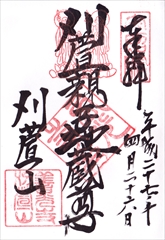 奉拝
平成二十七年
四月二十六日
刈萱親子地蔵尊
刈萱山